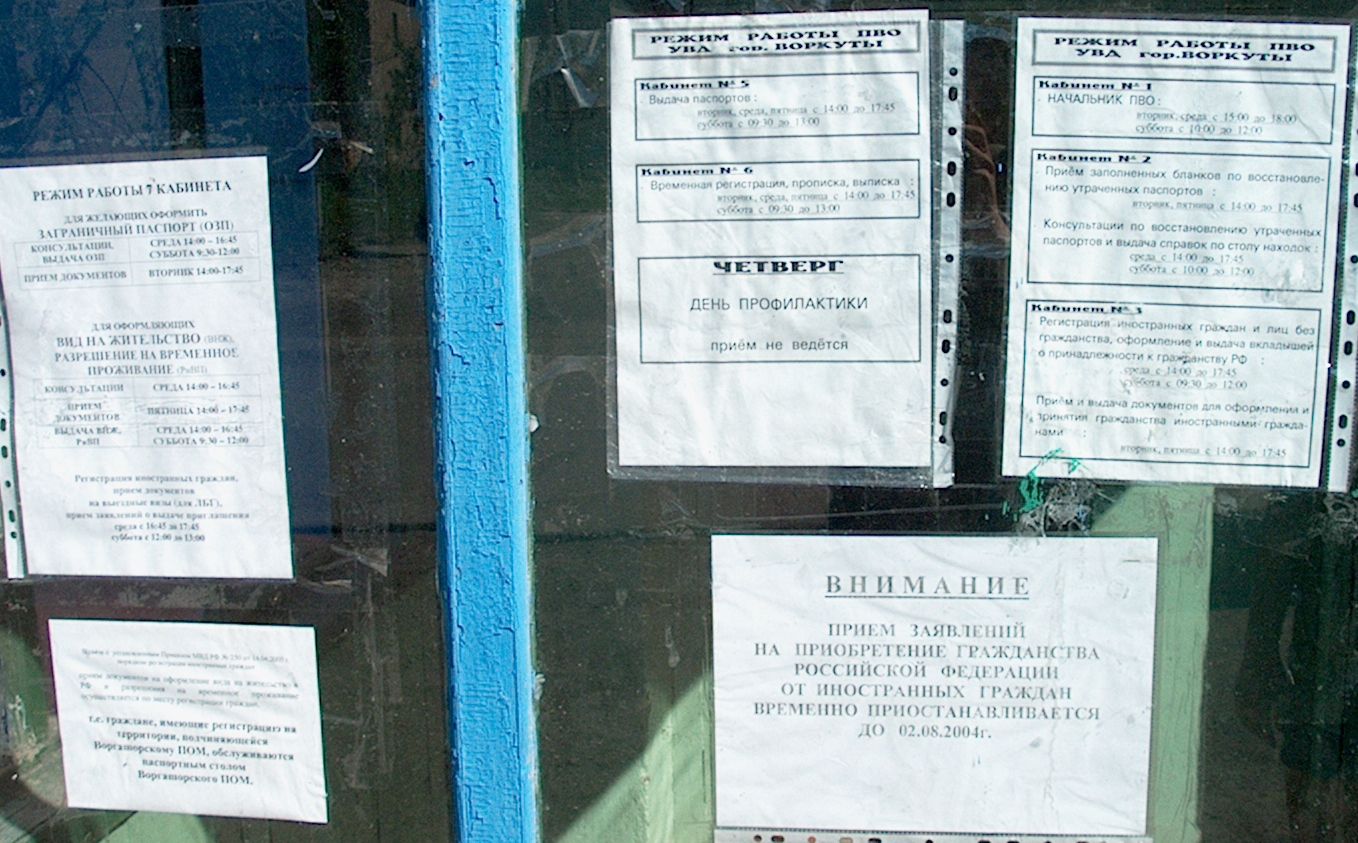 РЕЖИМ РАБОТЫ 7 КАБИНЕТА
ДЛЯ ЖЕЛАЮЩИХ ОФОРМИТЬ
ЗАГРАНИЧНЫЙ ПАСПОРТ (ОЗП)
КОНСУЛЬТАЦИИ, ВЫДАЧА ОЗП СРЕДА 14:00 – 16:45 СУББОТА 9:30-12:00
ПРИЕМ ДОКУМЕНТОВ ВТОРНИК 14:00-17:45
ДЛЯ ОФОРМЛЯЮЩИХ
ВИД НА ЖИТЕЛЬСТВО (ВНЖ),
РАЗРЕШЕНИЕ НА ВРЕМЕННОЕ
ПРОЖИВАНИЕ (РнВП)
КОНСУЛЬТАЦИИ СРЕДА 14:00 – 16:45
ПРИЕМ ДОКУМЕНТОВ ПЯТНИЦА 14:00 – 17:45
ВЫДАЧА ВНЖ, РнВП СРЕДА 14:00 – 16:45 СУББОТА 9:30 – 12:00
Регистрация иностранных граждан,
прием документов
на выездные визы (для ЛБГ),
прием заявлений о выдаче приглашения
среда с 16:45 до 17:45
суббота с 12:00 до 13:00
установленным Приказом МВД РФ №
порядком регистрации иностранных граждан
прием документов на оформление вида на жительство в
РФ и разрешения на временное проживание
осуществляется по месту регистрации граждан,
т.е. граждане, имеющие регистрацию на
территории, подчиняющейся
Воргашорскому ПОМ, обслуживаются
паспортным столом
Воргашорского ПОМ.
РЕЖИМ РАБОТЫ ПВО
УВД гор. ВОРКУТЫ
Кабинет № 5
Выдача паспортов :
вторник, среда, пятница с 14:00 до 17:45
суббота с 09:30 до 13:00
Кабинет № 6
Временная регистрация, прописка, выписка :
вторник, среда, пятница с 14:00 до 17:45
суббота с 09:30 до 13:00
ЧЕТВЕРГ
ДЕНЬ ПРОФИЛАКТИКИ
приём не ведётся
РЕЖИМ РАБОТЫ ПВО
УВД гор.ВОРКУТЫ
Кабинет № 1
НАЧАЛЬНИК ПВО :
вторник, среда с 15:00 до 18:00
суббота с 10:00 до 12:00
Кабинет № 2
Приём заполненных бланков по восстановле-
нию утраченных паспортов :
вторник, пятница с 14:00 до 17:45
Консультации по восстановлению утраченных
паспортов и выдача справок по столу находок :
среда с 14:00 до 17:45
суббота с 10:00 до 12:00
Кабинет № 3
Регистрация иностранных граждан и лиц без
гражданства, оформление и выдача вкладышей
о принадлежности к гражданству РФ :
среда с 14:00 до 17:45
суббота с 09:30 до 12:00
Приём и выдача документов для оформления и
принятия гражданства иностранными гражда-
нами :
вторник, пятница с 14:00 до 17:45
ВНИМАНИЕ
ПРИЕМ ЗАЯВЛЕНИЙ
НА ПРИОБРЕТЕНИЕ ГРАЖДАНСТВА
РОССИЙСКОЙ ФЕДЕРАЦИИ
ОТ ИНОСТРАННЫХ ГРАЖДАН
ВРЕМЕННО ПРИОСТАНАВЛИВАЕТСЯ
ДО 02.08.2004г.